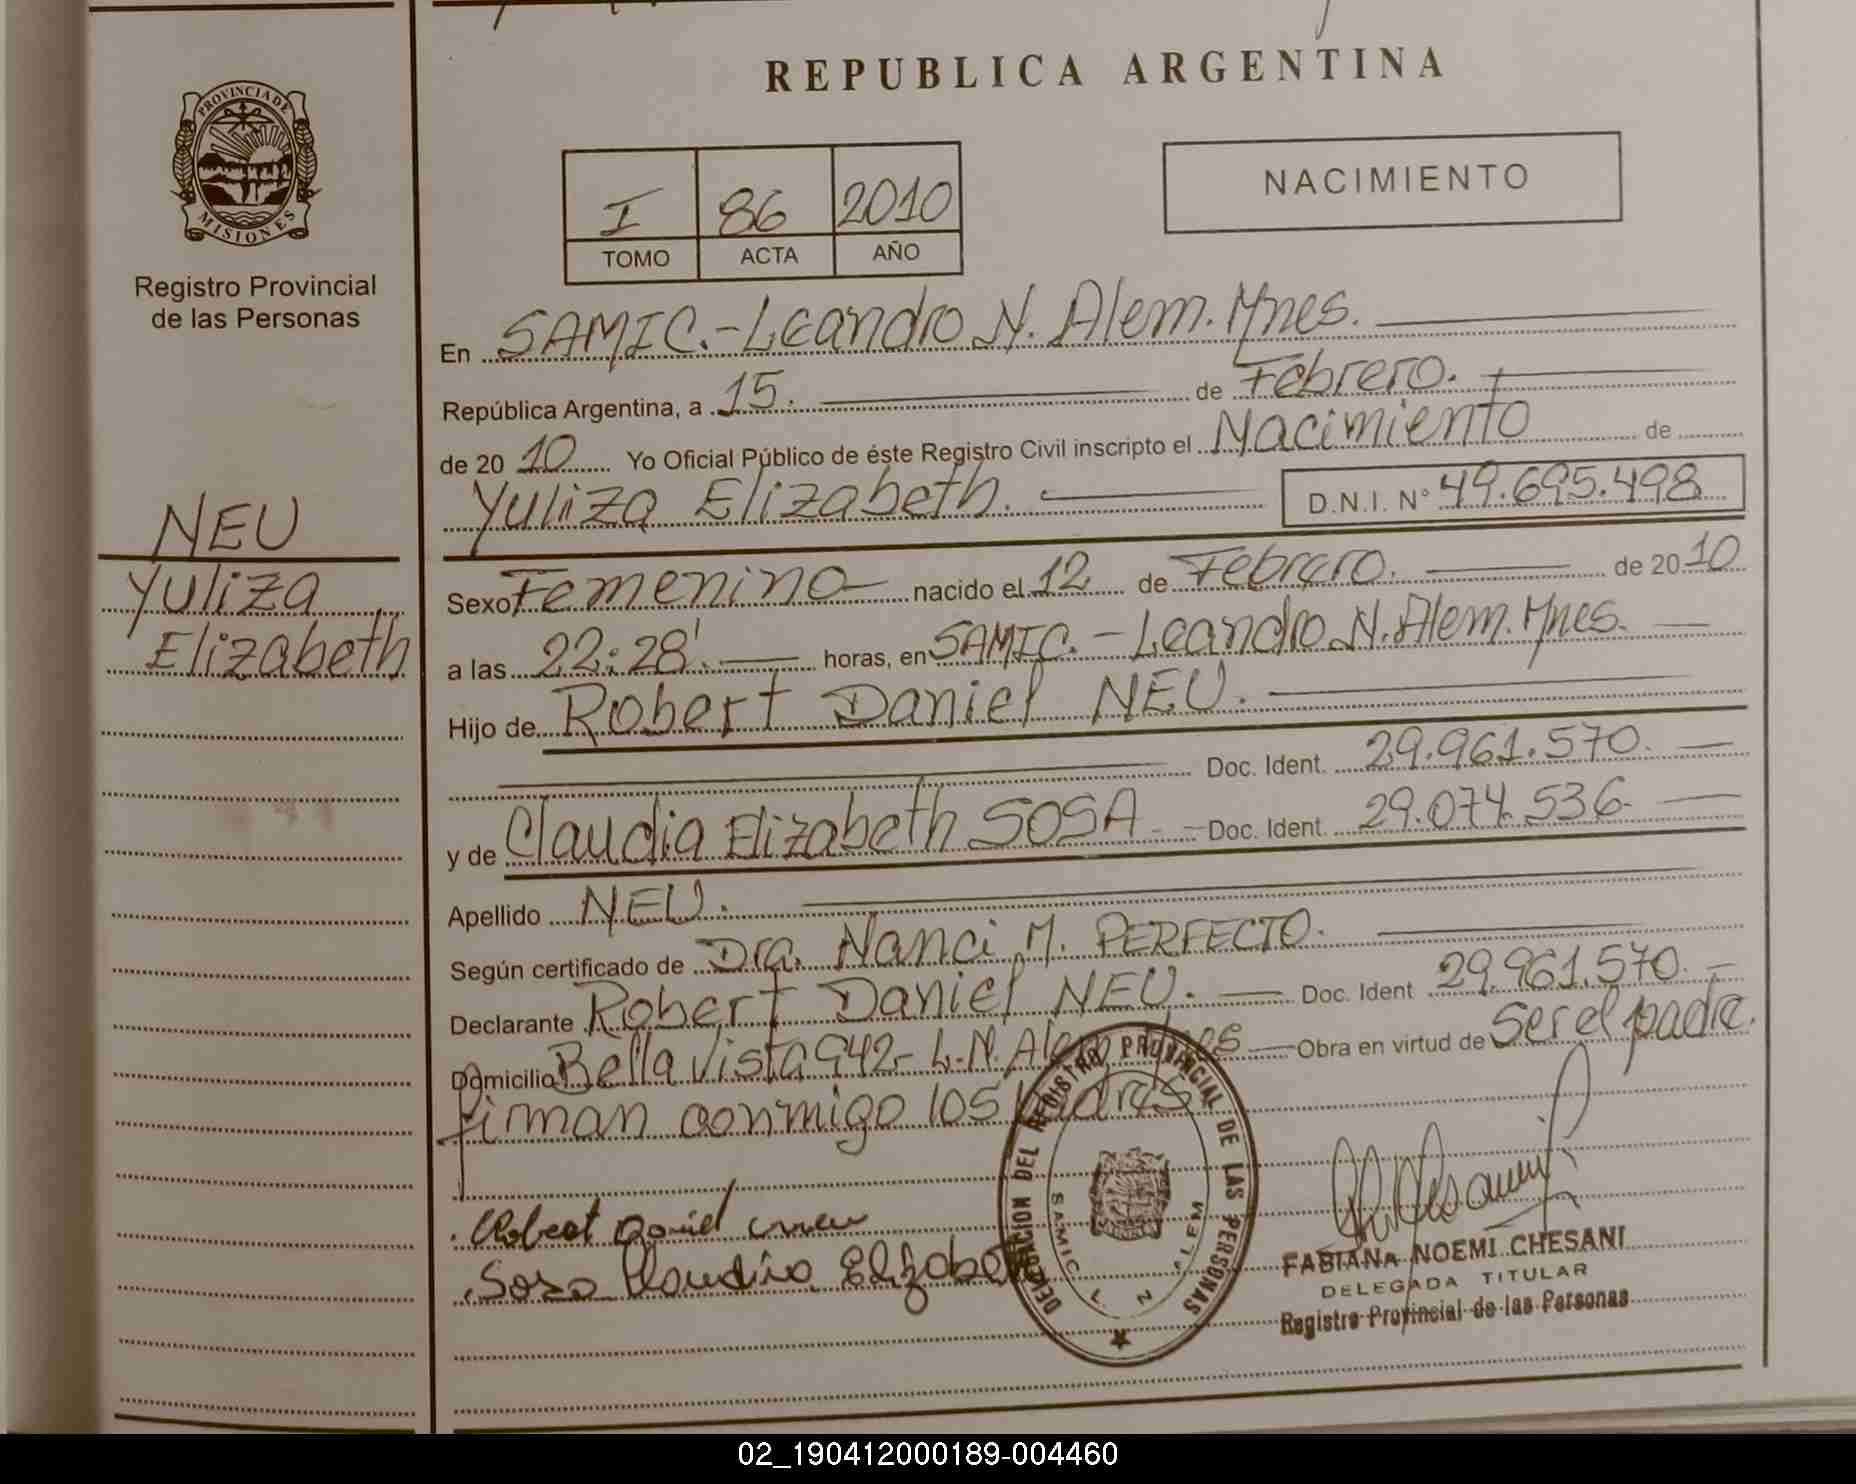 REPUBLICA ARGENTINA
PROVINCIA DE
MISIONES
Registro Provincial
de las Personas
I 86 2010
TOMO ACTA AÑO
NACIMIENTO
NEU
Yuliza
Elizabeth
En SAMIC.-Leandro N. Alem. Mnes.
República Argentina, a 15. de Febrero.
de 20 10 Yo Oficial Público de éste Registro Civil inscripto el Nacimiento de
Yuliza Elizabeth. D.N.I. N° 49.695.498
Sexo Femenino nacido el 12 de Febrero. de 20 10
a las 22:28'. horas, en SAMIC.-Leandro N. Alem. Mnes.
Hijo de Robert Daniel NEU.
Doc. Ident. 29.961.570.
y de Claudia Elizabeth SOSA Doc. Ident. 29.074.536
Apellido NEU.
Según certificado de Dra. Nanci M. PERFECTO.
Declarante Robert Daniel NEU. Doc. Ident 29.961.570.
Domicilio Bella Vista 942- L.N. Alem Mnes Obra en virtud de Ser el padre.
firman conmigo los padres
Robert Daniel Neu
Sosa Claudia Elizabeth
DELEGACION DEL REGISTRO PROVINCIAL DE LAS PERSONAS
SAMIC L. N. ALEM
FABIANA NOEMI CHESANI
DELEGADA TITULAR
Registro Provincial de las Personas
02_190412000189-004460